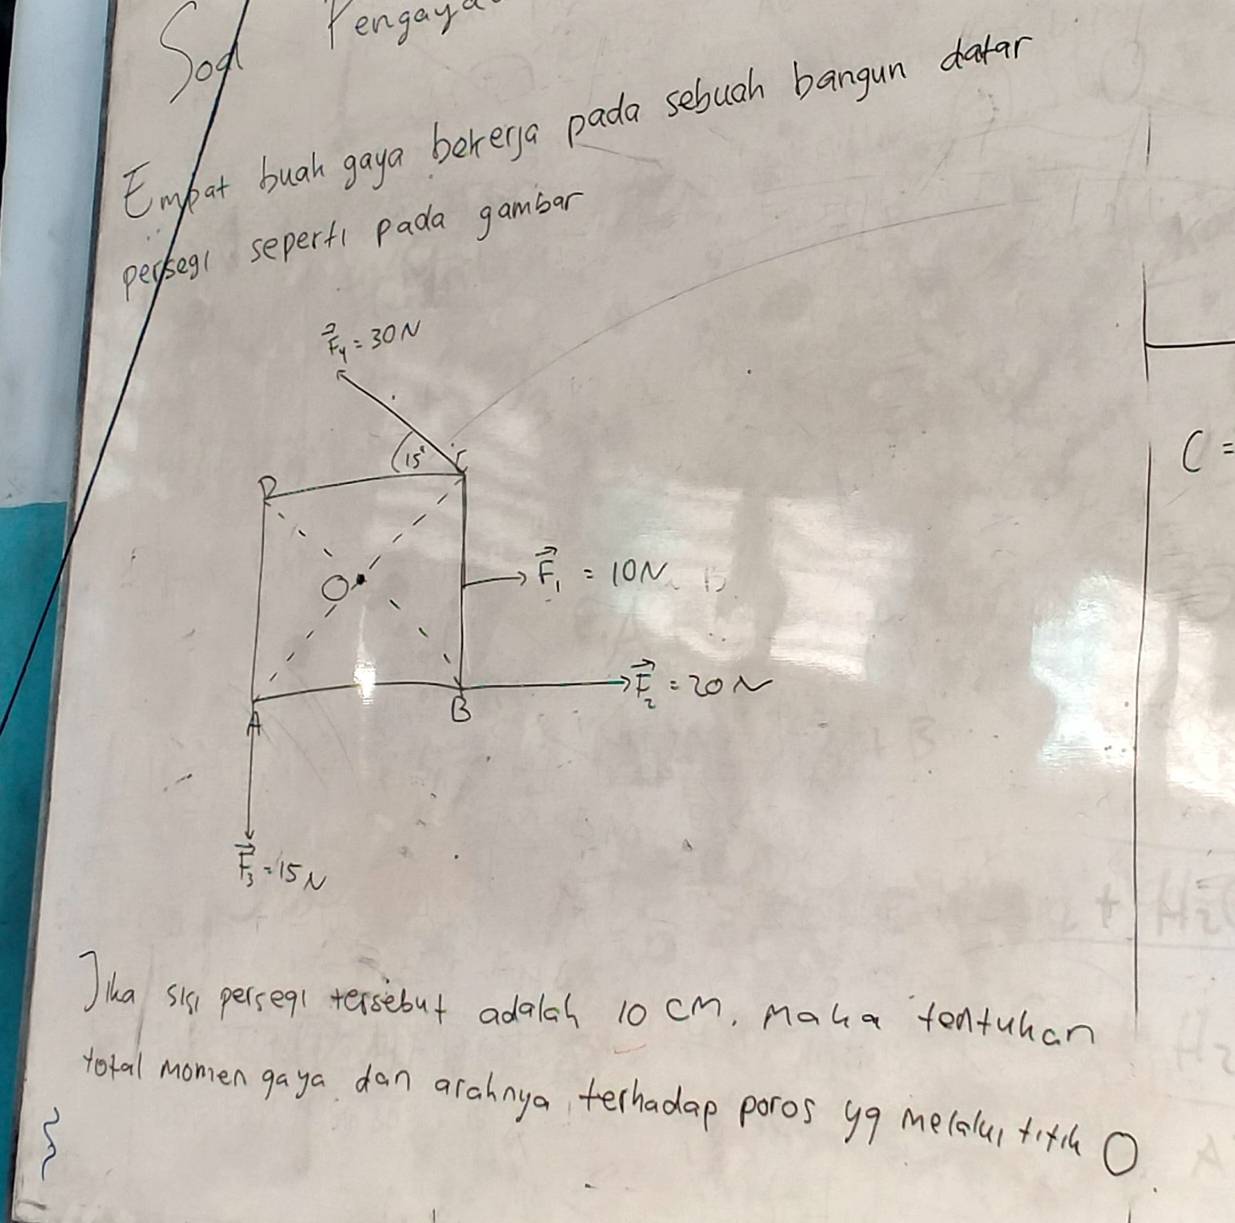 Soal Pengaya
Empat buah gaya bekerja pada sebuah bangun datar
persegi seperti pada gambar
F₄ = 30 N
15°
D C
O
F₁ = 10 N
F₂ = 20 N
A B
F₃ = 15 N
C =
Jika sisi persegi tersebut adalah 10 cm, maka tentukan
total momen gaya dan arahnya terhadap poros yg melalui titik O.